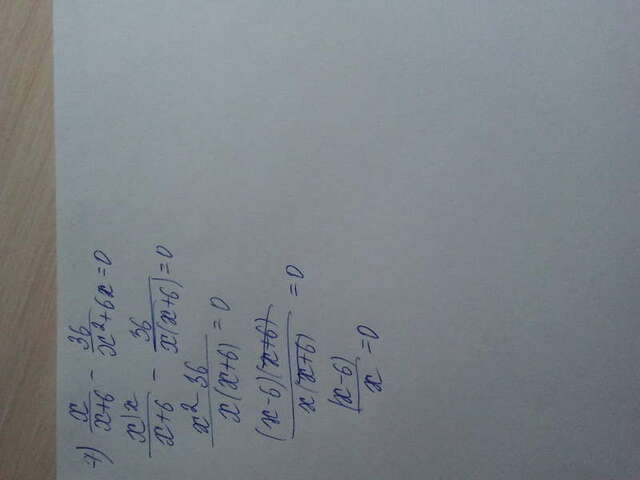 7) x/(x+6) - 36/(x²+6x) = 0
x)x/(x+6) - 36/(x(x+6)) = 0
(x² 36)/(x(x+6)) = 0
((x-6)(x+6))/(x(x+6)) = 0
(x-6)/x = 0